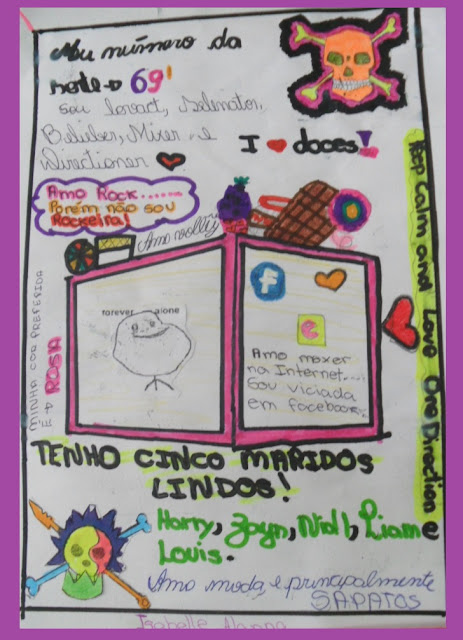 Meu número da
sorte → 69!
Sou lovact, Selenator,
Belieber, Mixer e
Directioner
I ❤ doces!
Amo Rock.......
Porém não sou
Rockeira!
Amo vôlty
Keep Calm and Love One Direction
MINHA COR PREFERIDA
É → ROSA
forever alone
f
e
Amo mexer
na Internet....
Sou viciada
em facebook...
TENHO CINCO MARIDOS
LINDOS!
Harry, Zayn, Niall, Liam e
Louis.
Amo moda, e principalmente
SAPATOS
Isabelle